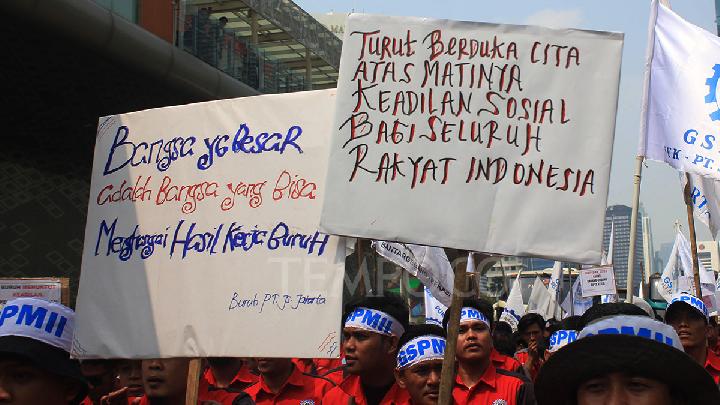 Bangsa yg Besar
adalah Bangsa yang Bisa
Menghargai Hasil Kerja Buruh
Buruh PT. JS. Jakarta
TURUT BERDUKA CITA
ATAS MATINYA
KEADILAN SOSIAL
BAGI SELURUH
RAKYAT INDONESIA
GS
TEMPO.CO
GSPMII
GSPMII
SPMII